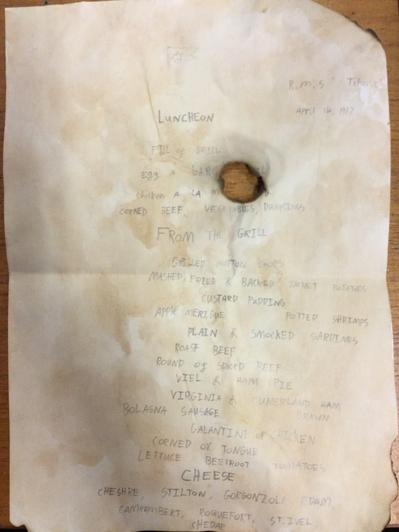 R.M.S "Titanic"
April 14, 1912
LUNCHEON
EGG A
Chicken A LA
CORNED BEEF, VEGETABLES, DUMPLINGS
FROM THE GRILL
GRILLED MUTTON CHOPS
MASHED, FRIED & BACKED JACKET POTATOES
CUSTARD PUDDING
APPLE MERIGUE POTTED SHRIMPS
PLAIN & SMOCKED SARDINES
ROAST BEEF
ROUND of SPICED BEEF
VIEL & HAM PIE
VIRGINIA & CUMBERLAND HAM
BOLAGNA SAUSAGE BRAWN
GALANTINE OF CHICKEN
CORNED OX TONGUE
LETTUCE BEETROOT TOMATOES
CHEESE
CHESHIRE, STILTON, GORGONZOLA, EDAM,
CAMEMBERT, ROQUEFORT, ST.IVEL
CHEDAR